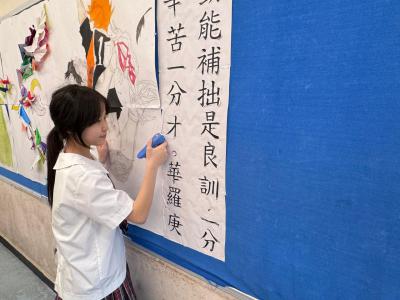 勤能補拙是良訓，一分
辛苦一分才。華羅庚